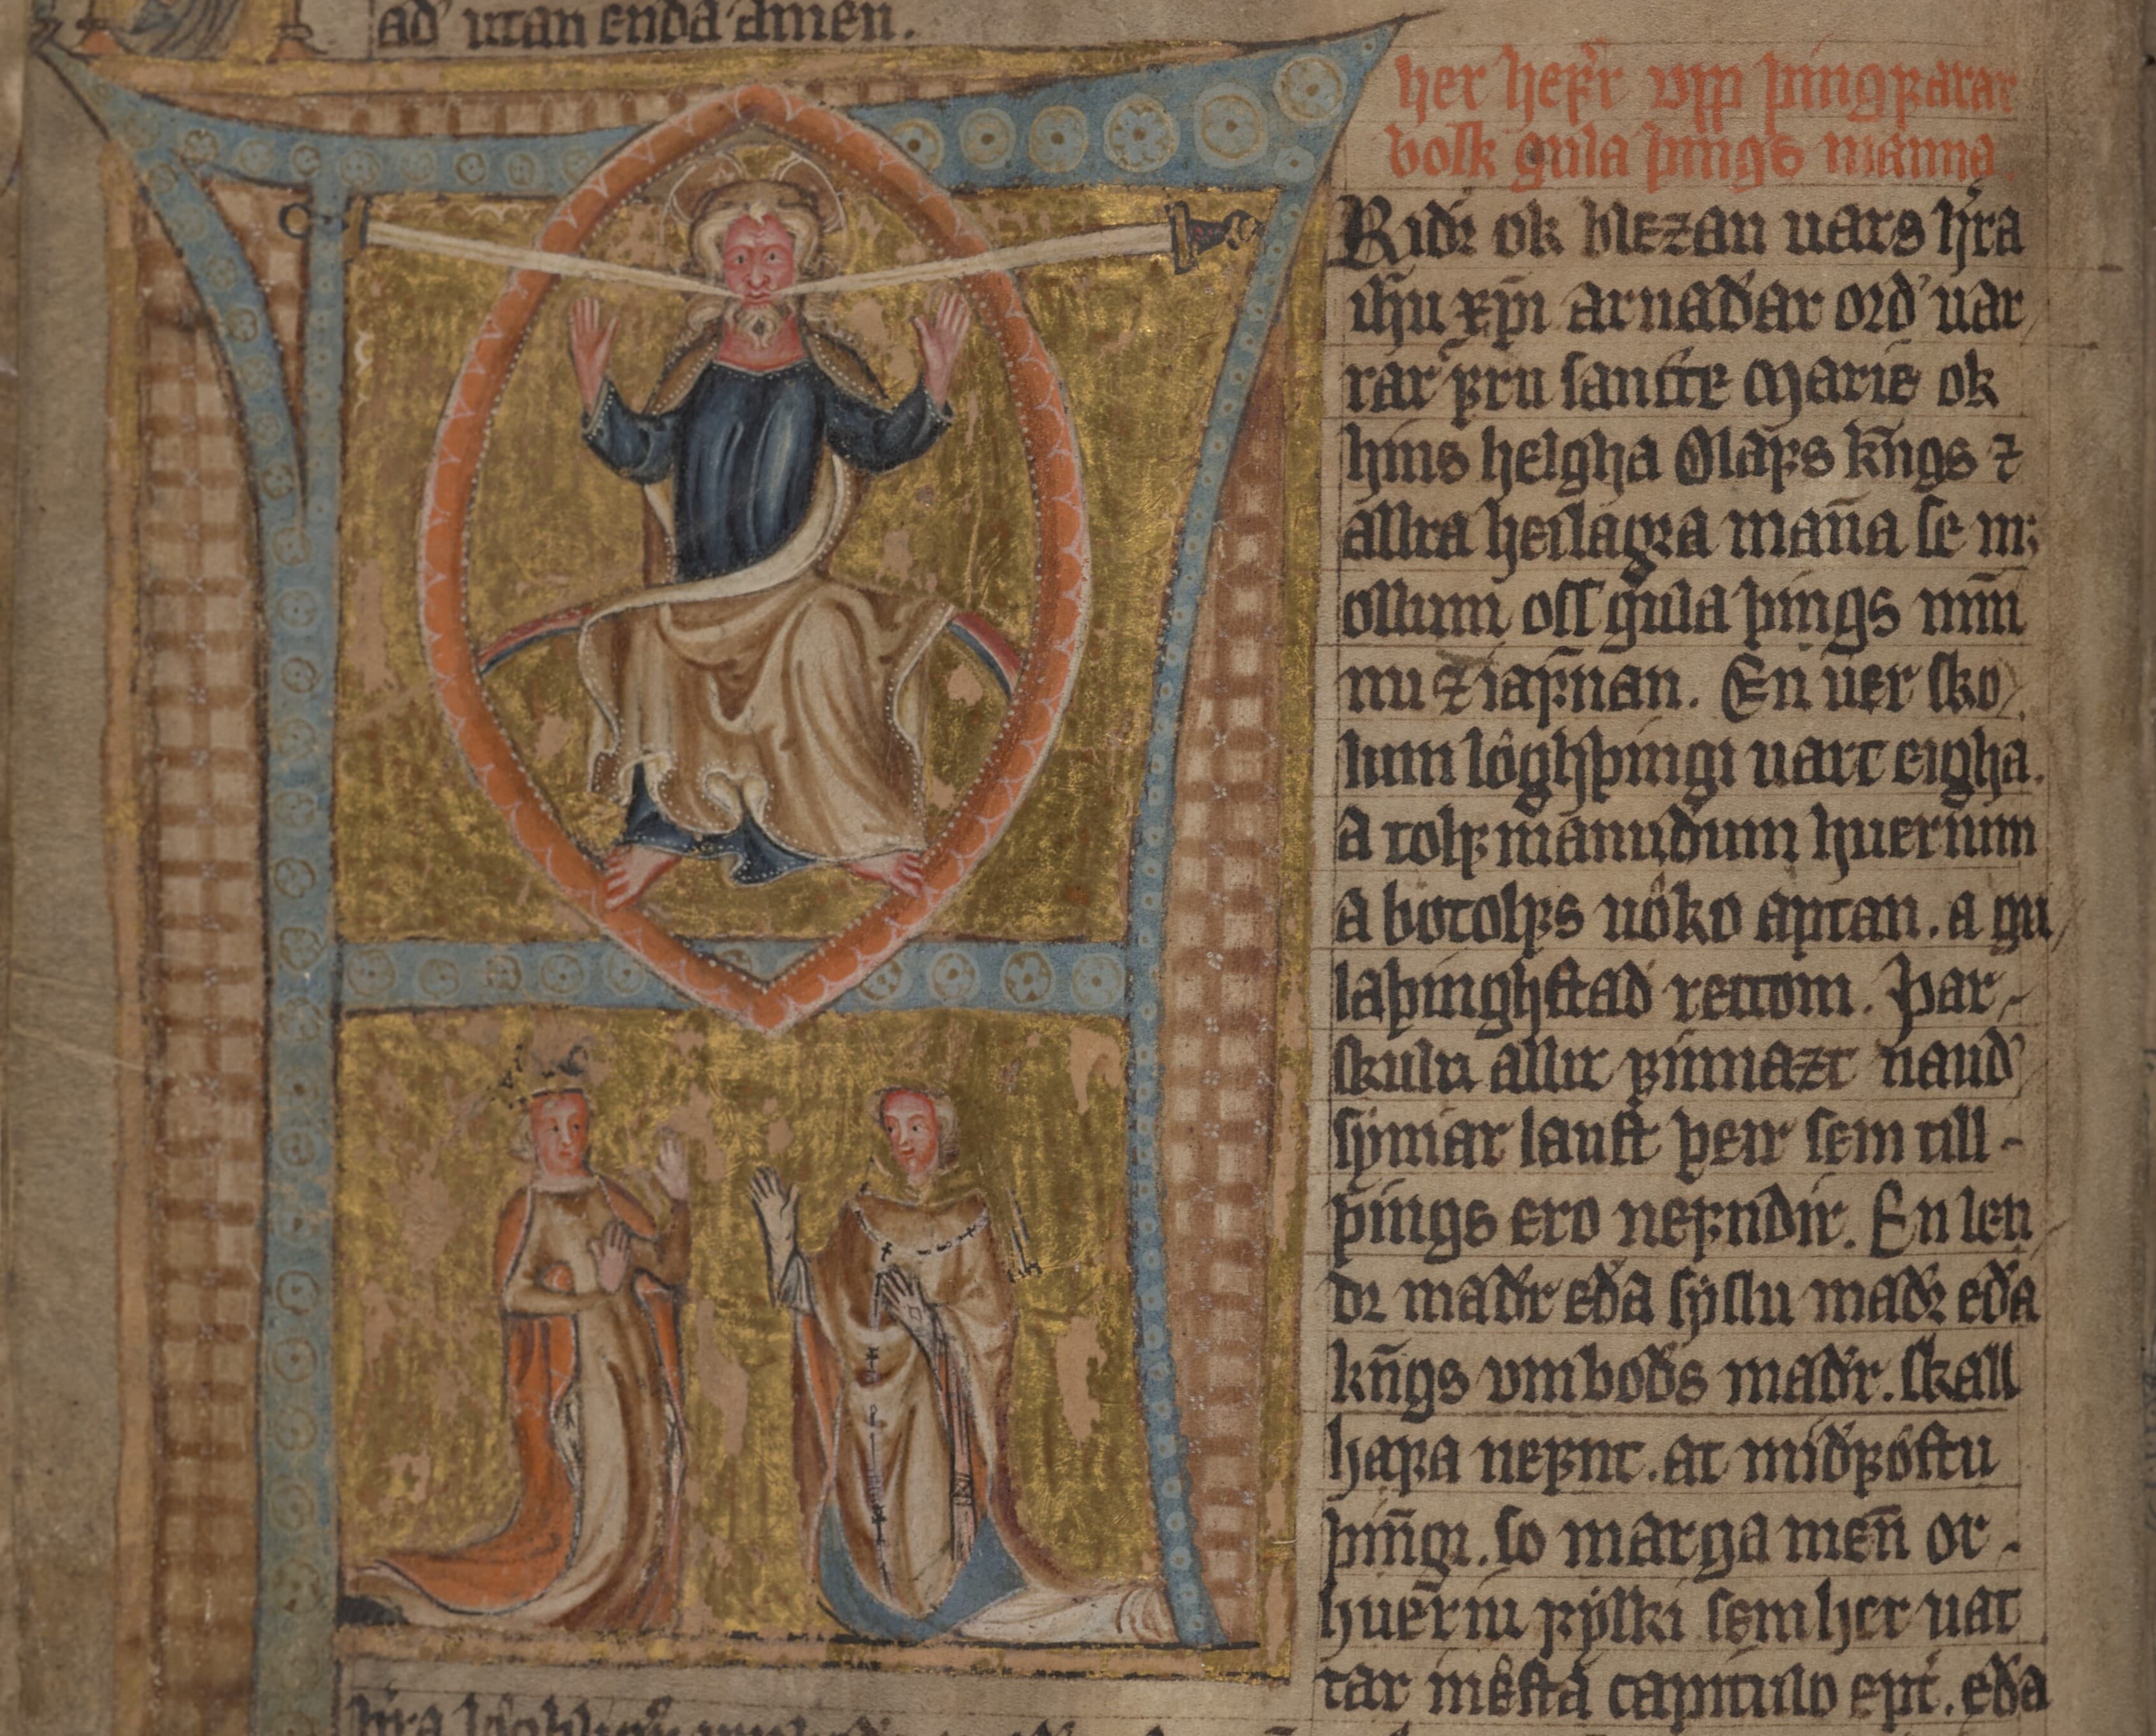 ad utan enda amen.
her hefr vpp þingfarar
bolk gula þings manna
Ridr ok blezan uars hra
ihu xpi arnadar ord uar
rar fru sancte Marie ok
hins helgha Olafs kngs ⁊
allra heilagra manna se m;
ollum oss gula þings mm
nu ⁊ iafnan. En uer sko
lum lôghþingi uart eigha.
A tolf manudum huerium
a botolfs uôko aptan. a gu
laþinghstad rettom. Þar
skulu allir finnazt naud
syniar laust þeir sem till
þings ero nefndir. En len
dr madr eda syslu madr eda
kngs vmbods madr. skall
hafa nefnt. at midfôstu
þingi. so marga men or
hueriu fylki sem her uat
tar mêsta capitulo ept. eda